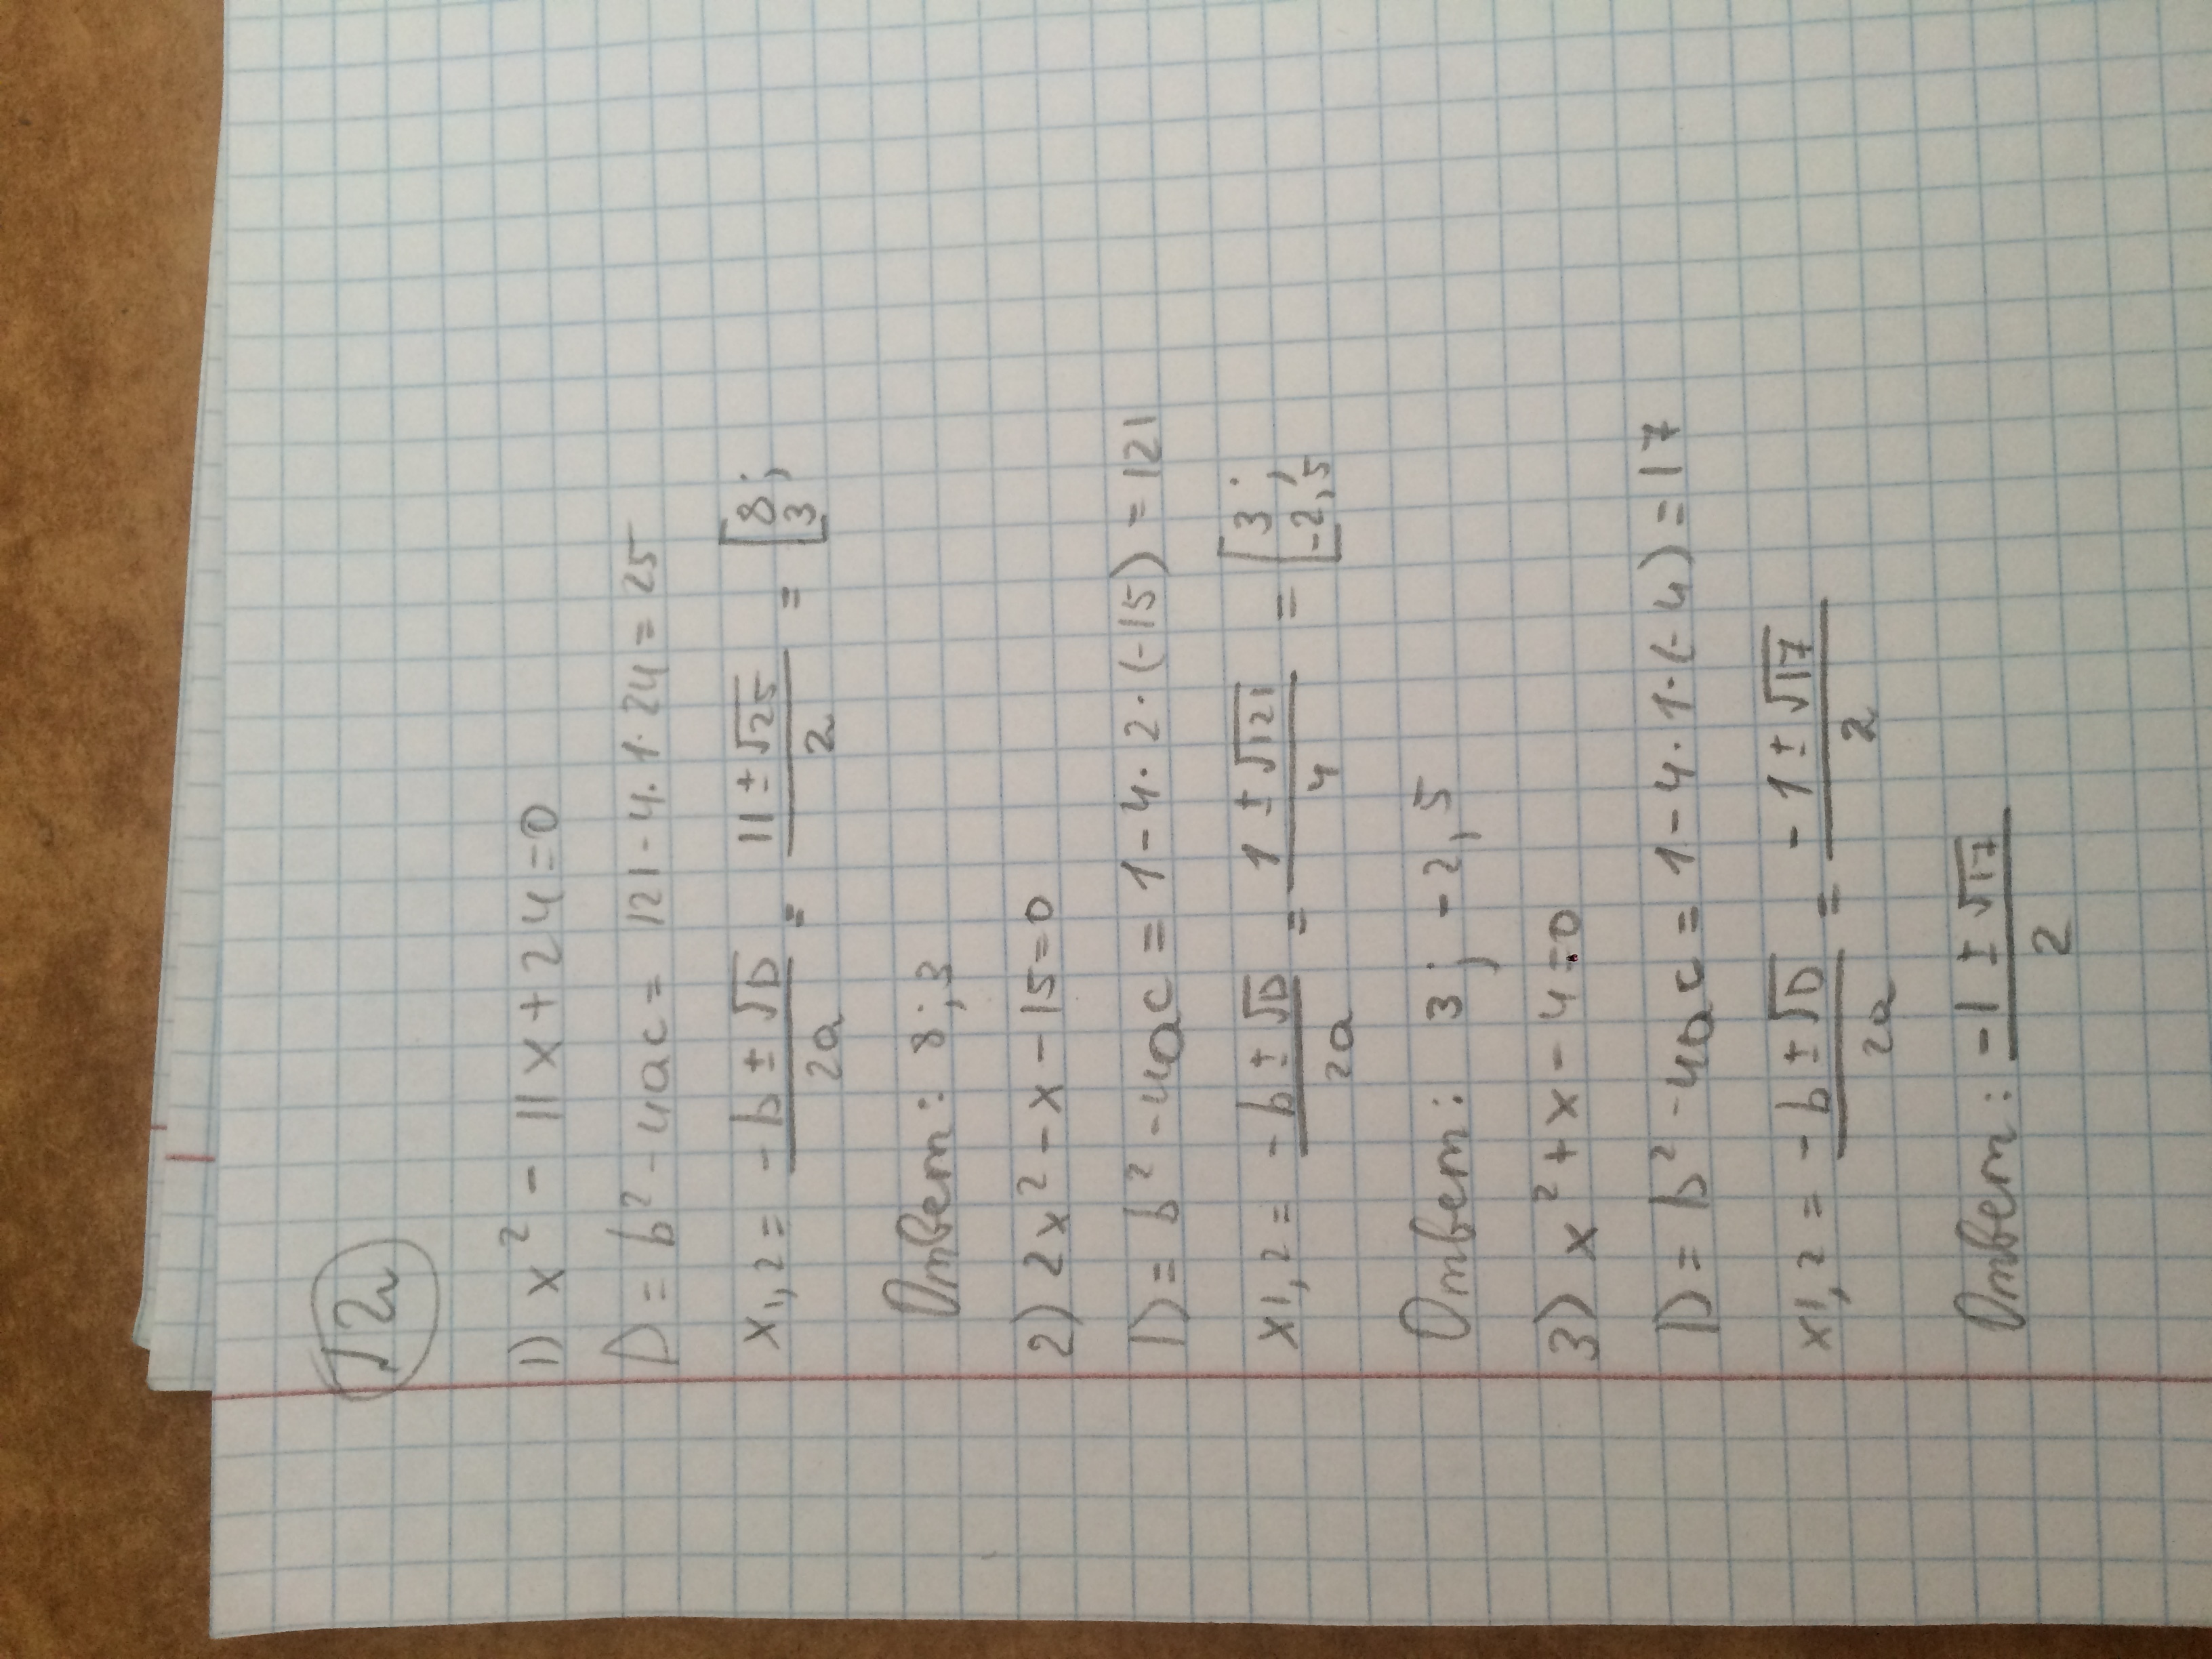 √2
1) x² - 11x + 24 = 0
D = b² - 4ac = 121 - 4·1·24 = 25
x1,2 = (-b ± √D)/(2a) = (11 ± √25)/2 = [8; 3
Ответ: 8; 3
2) 2x² - x - 15 = 0
D = b² - 4ac = 1 - 4·2·(-15) = 121
x1,2 = (-b ± √D)/(2a) = (1 ± √121)/4 = [3; -2,5
Ответ: 3; -2,5
3) x² + x - 4 = 0
D = b² - 4ac = 1 - 4·1·(-4) = 17
x1,2 = (-b ± √D)/(2a) = (-1 ± √17)/2
Ответ: (-1 ± √17)/2